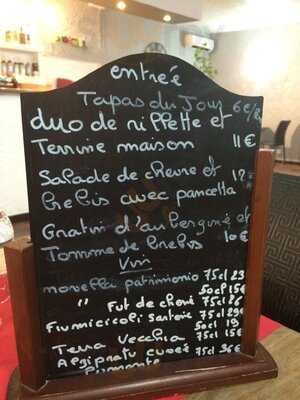 entrée
Tapas du Jour 6€/8
duo de rillette et
Terrine maison 11€
Salade de chevre et
brebis avec pancetta
Gratin d'aubergine et
Tomme de brebis 10€
Vin
novella patrimonio 75cl 23
50cl 15€
" Fut de chene 75cl 26
Fiumicicoli Sartene 75cl 29€
50cl 19
Terra Vecchia 75cl 15€
75cl 36€
Piemonte